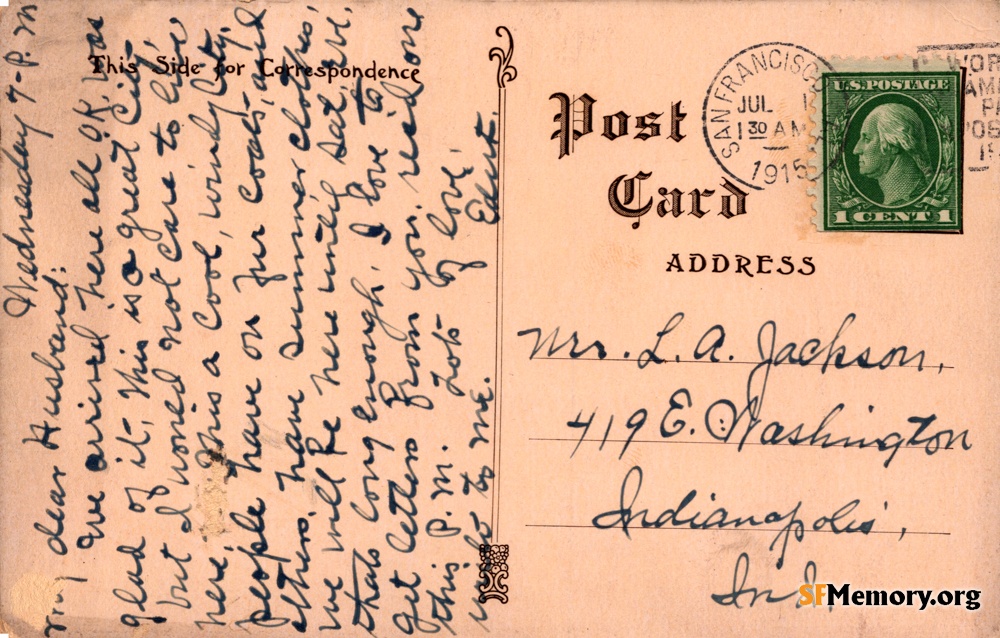 Wednesday 7-P.M
My dear Husband:
We arrived here all O.K. was
glad of it, this is a great City,
but I would not care to live
here. This a cool, windy City.
people have on fur coats, and
others have summer clothes.
we will be here until Sat. eve.
thats long enough. I love to
get letters from you, rec'd one
this P.M. Lots of love.
write to me.
This Side for Correspondence
Post
Card
ADDRESS
SAN FRANCISCO
JUL
1 30 AM
1915
U.S. POSTAGE
1 CENT 1
Mr. L. A. Jackson,
419 E. Washington
Indianapolis,
Ind.
SFMemory.org